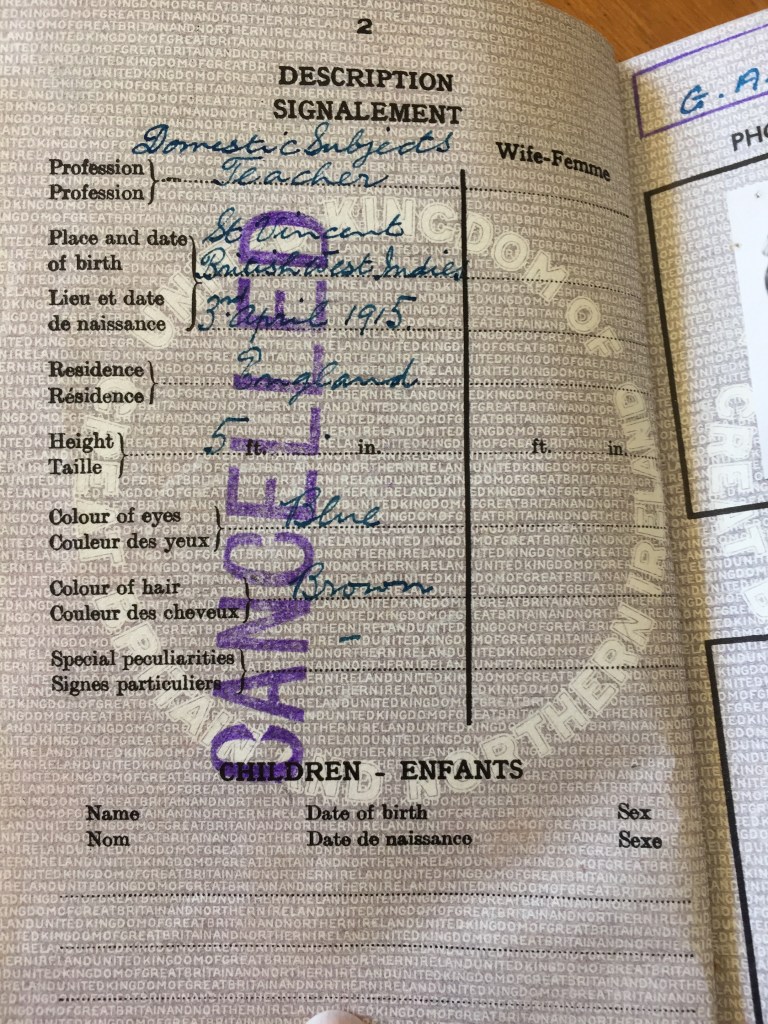 2
DESCRIPTION
SIGNALEMENT
Domestic Subjects
Teacher
Profession
Profession
Wife-Femme
Place and date
of birth
Lieu et date
de naissance
St Vincent
British West Indies
3rd April 1915.
Residence
Résidence
England
Height
Taille
5 ft. in.
ft. in.
Colour of eyes
Couleur des yeux
Blue
Colour of hair
Couleur des cheveux
Brown
Special peculiarities
Signes particuliers
–
CANCELLED
CHILDREN - ENFANTS
Name Date of birth Sex
Nom Date de naissance Sexe
G. A.